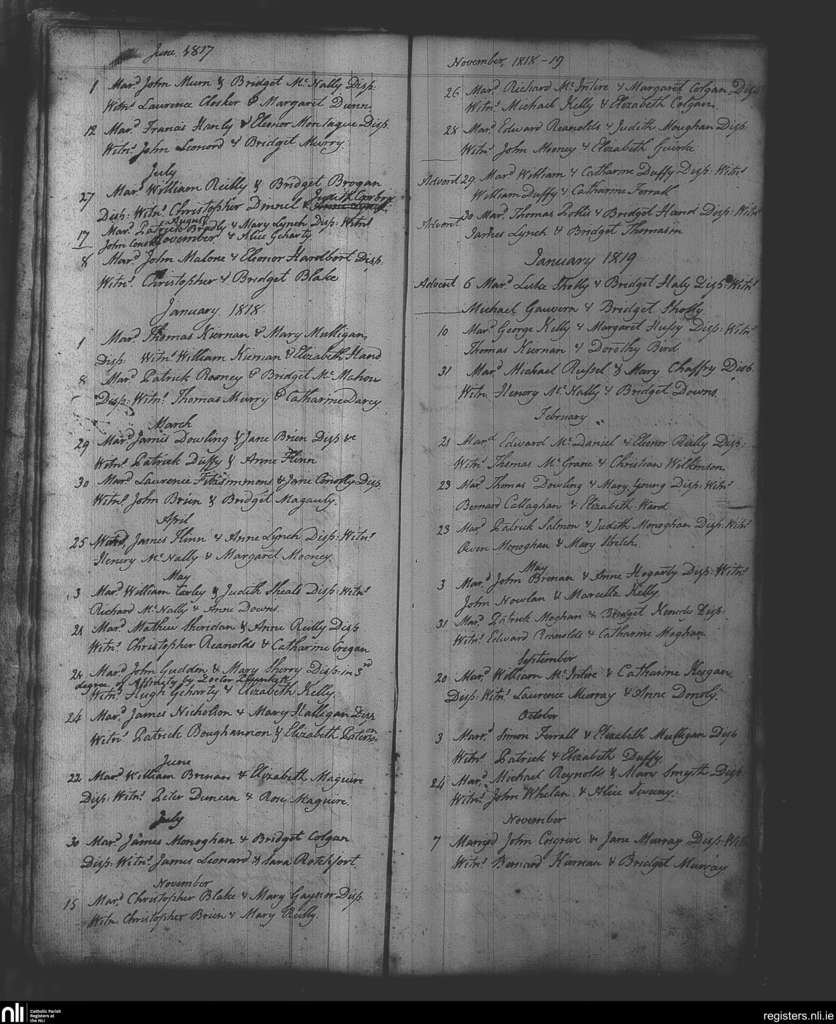 June 1817
1 Mard John Murn & Bridget McNally Disp.
Witns Laurence Closker & Margaret Dunn
12 Mard Francis Hanly & Elenor Montague Disp.
Witns John Leonord & Bridget Murry
July
27 Mard William Reilly & Bridget Brogan
Disp: Witns Christopher Dinnee & Judith Conboy
August
17 Mard Patrick Brady & Mary Lynch Disp: Witns
John & Alice Geharty
November
8 Mard John Malone & Eleonor Disp.
Witns Christopher & Bridget Blake
January 1818
1 Mard Thomas Kiernan & Mary Mulligan
Disp. Witns William Kiernan & Elizabeth Hand
8 Mard Patrick Rooney & Bridget McMahon
Disp: Witns Thomas Murry & Catharine Darcy
March
29 Mard James Dowling & Jane Brien Disp
Witns Patrick Duffy & Anne Flinn
30 Mard Laurence Fitzsimmons & Jane Conolly Disp
Witns John Brien & Bridget Magauly.
April
25 Mard James Flinn & Anne Lynch Disp: Witns
Henery McNally & Margaret Mooney
May
3 Mard William Carley & Judith Sheals Disp: Witns
Richard McNally & Anne Downs.
21 Mard Mathew Sheridan & Anne Reilly Disp
Witns Christopher Reanolds & Catharine Cregan
24 Mard John Gudden & Mary Sherry Disp: in 3rd
degree of Affinity by Doctor Plunkett
Witns Hugh Geharty & Elizabeth Kelly.
24 Mard James Nicholson & Mary Halligan Disp
Witns Patrick Boughannon & Elizabeth Paterson
June
22 Mard William Brenan & Elizabeth Maguire
Disp: Witns Peter Duncan & Rose Maguire.
July
30 Mard James Monoghan & Bridget Colgan
Disp: Witns James Leonard & Sara Rotchfort
November
15 Mard Christopher Blake & Mary Gaynor Disp
Witns Christopher Brien & Mary Reilly.
November, 1818-19
26 Mard Richard McIntire & Margaret Colgan Disp
Witns Michael Kelly & Elizabeth Colgan.
28 Mard Edward Reanolds & Judith Moughan Disp
Witns John Mooney & Elizabeth Guirke
Advent 29 Mard William & Catharine Duffy Disp: Witns
William Duffy & Catharine Farrall
Advent 30 Mard Thomas & Bridget Hand Disp: Witns
James Lynch & Bridget Thomason
January 1819
Advent 6 Mard Luke Sholly & Bridget Haly Disp: Witns
Michael Gauvern & Bridget Sholly
10 Mard George Kelly & Margaret Husby Disp: Witns
Thomas Kiernan & Dorothy Bird
31 Mard Michael Russel & Mary Chaffry Disp.
Witns Henery McNally & Bridget Downs.
February
21 Mard Edward McDaniel & Elenor Reilly Disp:
Witns Thomas McGrane & Christian Wilkinson
23 Mard Thomas Dowling & Mary Young Disp: Witns
Bernard Callaghan & Elizabeth Ward
23 Mard Patrick Salmon & Judith Monoghan Disp: Witns
Owen Monoghan & Mary
May
3 Mard John Brenan & Anne Hogarty Disp: Witns
John Nowlan & Marcella Kelly
31 Mard Patrick Maghan & Bridget Disp:
Witns Edward Reanolds & Catharine Maghan
September
20 Mard William McIntire & Catharine Keegan
Disp Witns Laurence Murray & Anne
October
3 Marrd Simon Farrall & Elizabeth Mulligan Disp
Witns Patrick & Elizabeth Duffy
24 Mard Michael Reynolds & Mary Smyth Disp
Witns John Whelan & Alice Sweeny.
November
7 Married John Cosgrive & Jane Murray Disp: Witns
Witns Bernard Kiernan & Bridget Murray
nli
Catholic Parish
Registers at
the NLI
registers.nli.ie